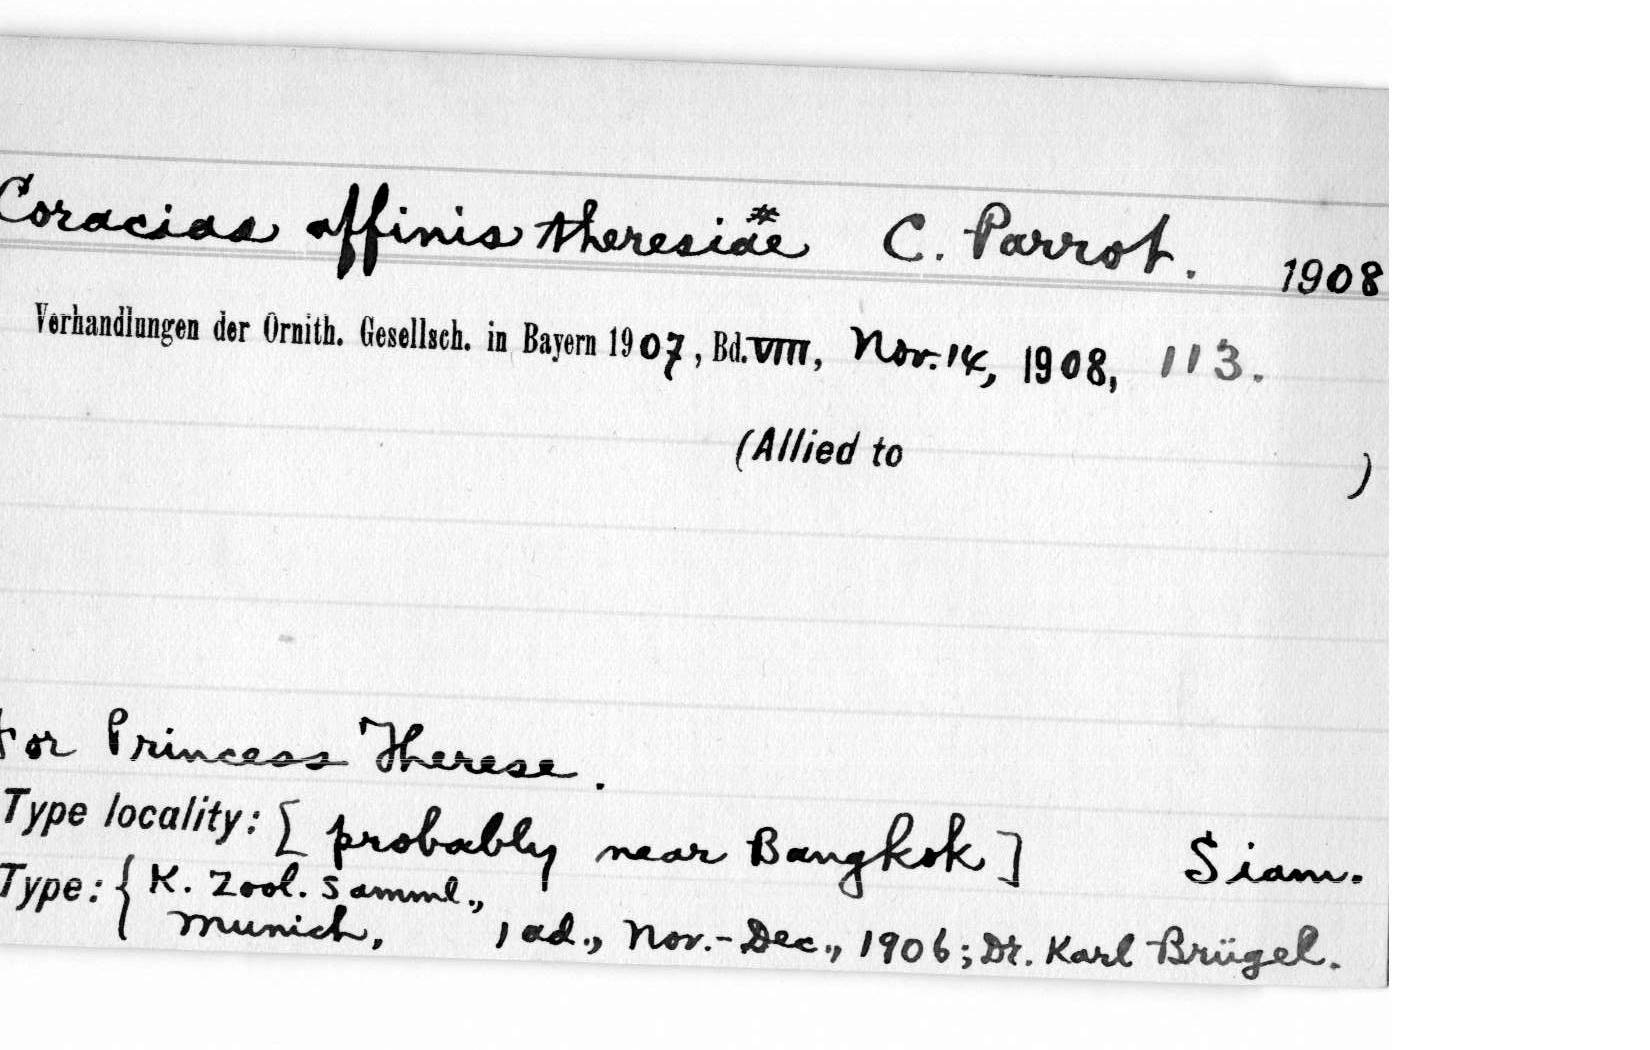 Coracias affinis theresiae* C. Parrot. 1908
Verhandlungen der Ornith. Gesellsch. in Bayern 1907, Bd. VIII, Nov. 14, 1908, 113.
(Allied to )
For Princess Therese.
Type locality: [probably near Bangkok] Siam.
Type: { K. Zool. Samml.,
Munich, 1 ad., Nov.-Dec., 1906; Dr. Karl Brügel.